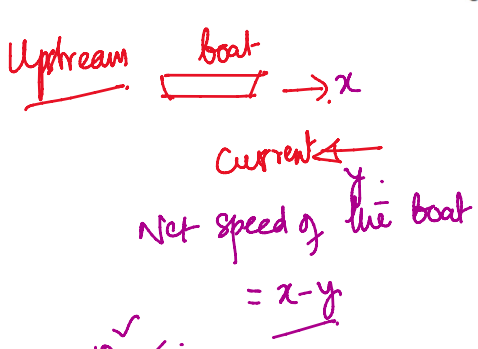 Upstream boat
x
Current
y
Net speed of the boat
= x-y